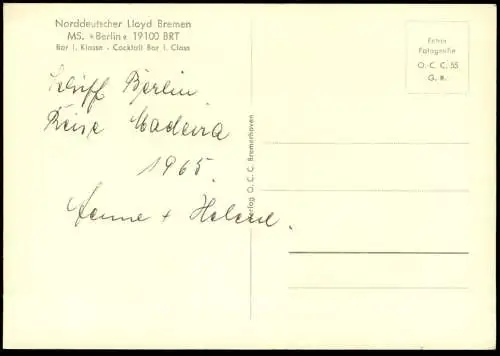 Norddeutscher Lloyd Bremen
MS. »Berlin« 19100 BRT
Bar I. Klasse - Cocktail Bar I. Class
Echte
Fotografie
O. C. C. 55
G. e.
Schiff Berlin
Reise Madeira
1965.
Hanne + Helene.
Verlag O. C. C. Bremerhaven